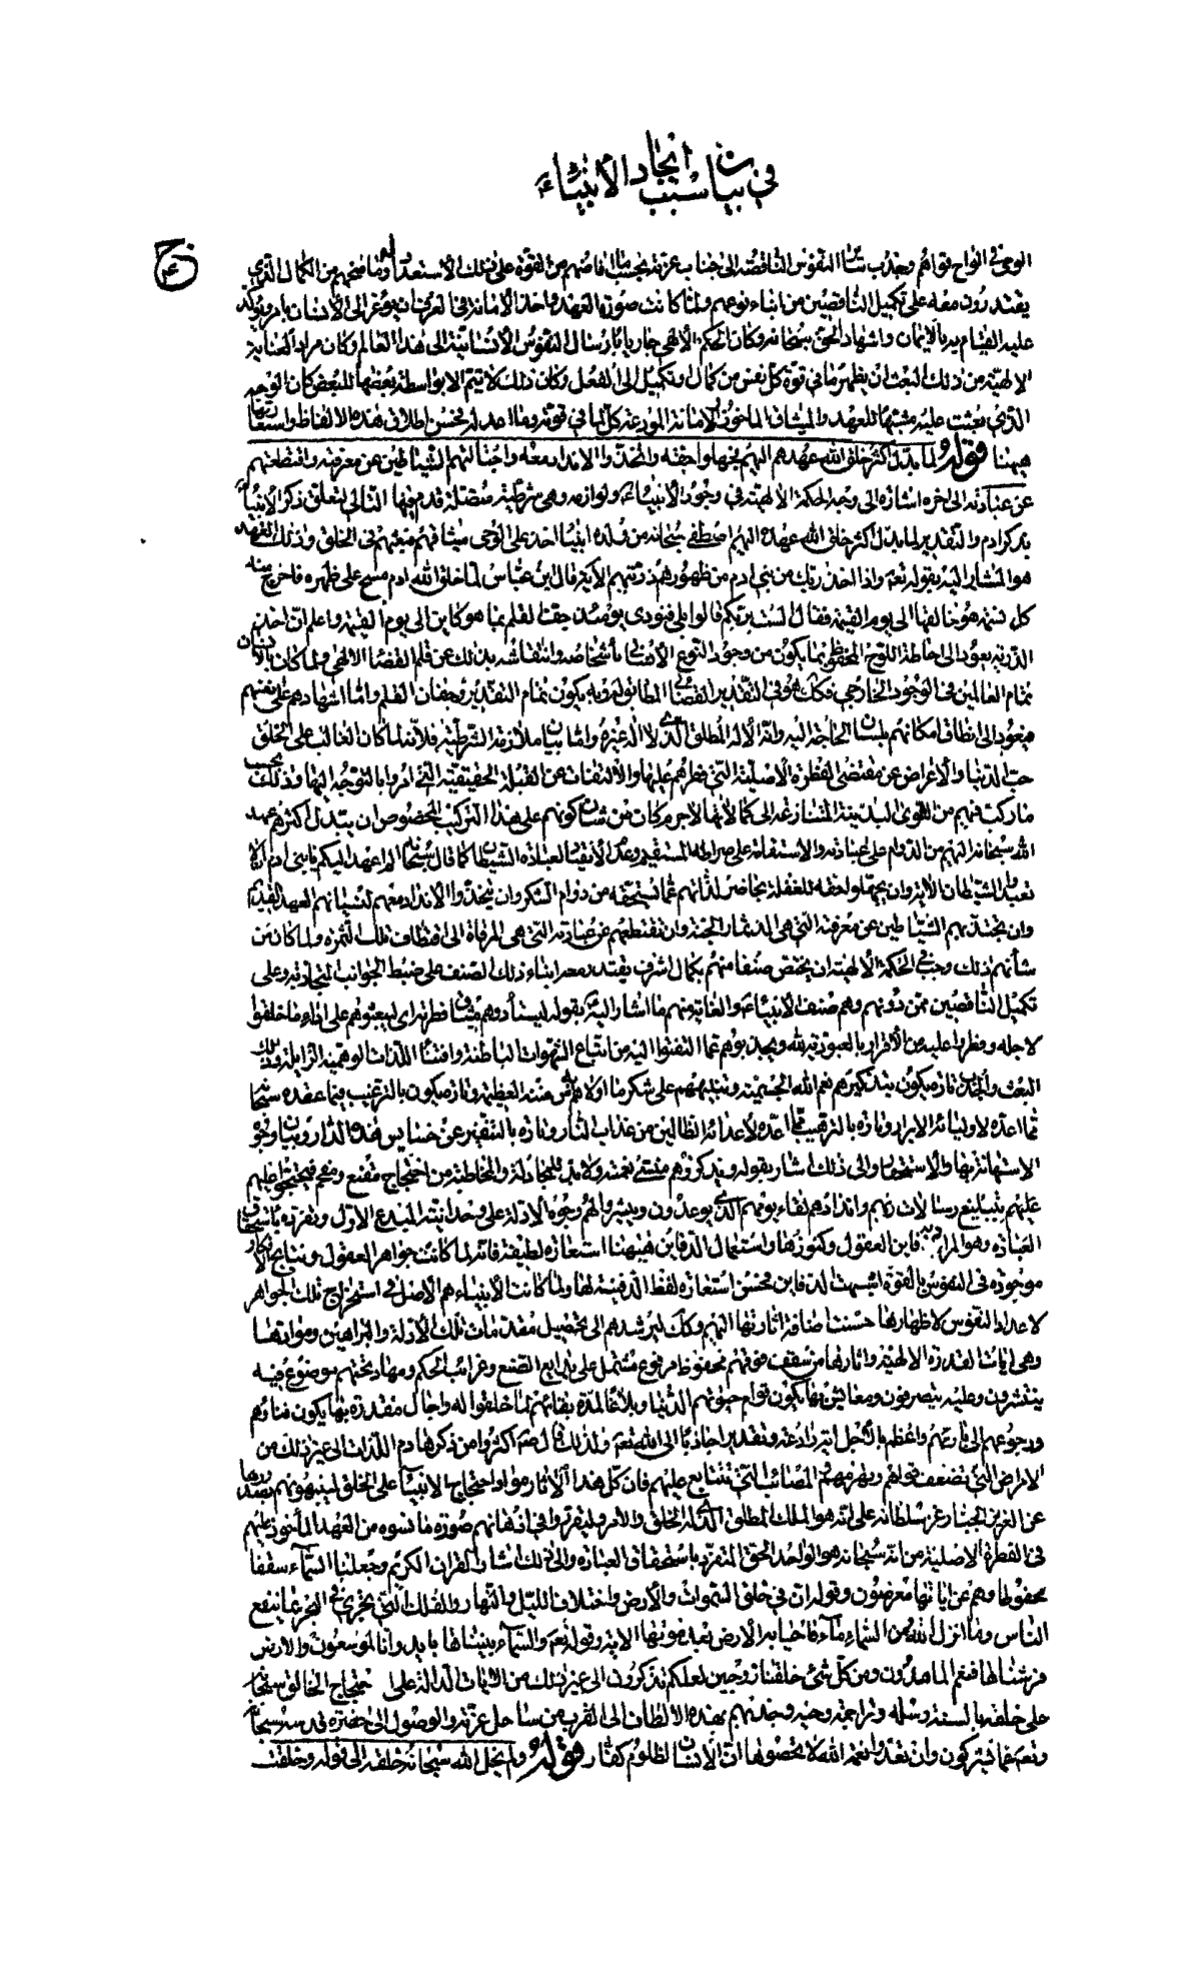 في بيان سبب ايجاد الأنبياء
ج
الوحي في الواح قواهم وجذب سائر النفوس الناقصة الى جناب عزته بحسب ما افاضهم من القوة على ذلك الاستعداد له وما منحهم من الكمال الذي
يقتدرون معه على تكميل الناقصين من ابناء نوعهم ولما كانت صورة العهد واخذ الامانة في العرف ان يوعز الى الانسان بامر ويؤكد
عليه القيام به بالايمان واشهاد الحق سبحانه وكان الحكم الالهي جاريا بارسال النفوس الانسانية الى هذا العالم وكان مراد العناية
الالهية من ذلك البعث ان يظهر ما في قوة كل نفس من كمال او تكميل الى الفعل وكان ذلك لا يتم الا بواسطة بعضها للبعض كان الوجه
الذي بعثت عليه مشبها للعهد والميثاق الماخوذ والامانة المودعة كل لما في قوته وما اعد له فحسن اطلاق هذه الالفاظ واستعارتها
ههنا قوله لما بدل اكثر خلق الله عهدهم اليهم فجهلوا حقه واتخذوا الانداد معه واجتالتهم الشياطين عن معرفته واقتطعتهم
عن عبادته الى اخره اشارة الى وجه الحكمة الالهية في وجود الأنبياء ولوازمه وهي شرطية متصلة قدم فيها التالي لتعلق ذكر الأنبياء
بذكر ادم والتقدير لما بدل اكثر خلق الله عهده اليهم اصطفى سبحانه من ولده انبياء اخذ على الوحي ميثاقهم فبعثهم في الخلق وذلك العهد
هو المشار اليه بقوله تعم واذ اخذ ربك من بني ادم من ظهورهم ذريتهم الاية قال ابن عباس لما خلق الله ادم مسح على ظهره فاخرج منه
كل نسمة هو خالقها الى يوم القيمة فقال الست بربكم قالوا بلى فنودي يومئذ جف القلم بما هو كاين الى يوم القيمة واعلم ان اخذ
الذرية يعود الى احاطة اللوح المحفوظ بما يكون من وجود النوع الانساني بأشخاصه وانتقاشه بذلك عن قلم القضا الالهي ولما كان بالانسان
تمام العالمين في الوجود الخارجي فكك هو في التقدير القضائي المطابق له وبه يكون تمام التقدير وجفان القلم واما اشهادهم على انفسهم
فيعود الى نطاق امكانهم بلسان الحاجة اليه وانه الاله المطلق الذي لا اله غيره واما بيان ملازمة الشرطية فلانه لما كان الغالب على الخلق
حب الدنيا والاعراض عن مقتضى الفطرة الاصلية التي فطرهم عليها والالتفات عن القبلة الحقيقية التي امروا بالتوجه اليها وذلك بحسب
ما ركب فيهم من القوى البدنية المتنازعة الى كمالاتها لاجرم كان من شان كونهم على هذا التركيب المخصوص ان يبدل اكثرهم عهد
الله سبحانه اليهم من الدوام على عبادته والاستقامة على صراطه المستقيم وعدم الانقياد لعبادة الشيطان كما قال سبحانه الم اعهد اليكم يا بني ادم ان لا
تعبدوا الشيطان الاية وان يجهلوا حقه للغفلة بحاضر لذاتهم عما يستحقه من دوام الشكر وان يتخذوا الانداد معه لنسيانهم العهد القديم
وان يجتذبهم الشياطين عن معرفته التي هي الذ ثمار الجنة وان تقتطعهم عن عبادته التي هي المرقاة الى اقتطاف تلك الثمرة ولما كان من
شأنهم ذلك وجب في الحكمة الالهية ان يختص صنفا منهم بكمال اشرف يقتدر معه ابناء ذلك الصنف على ضبط الجوانب المتجاذبة وعلى
تكميل الناقصين ممن دونهم وهم صنف الأنبياء والغاية منهم ما اشار اليه بقوله ليستأدوهم ميثاق فطرته اي ليبعثوهم على اداء ما خلقوا
لاجله وفطروا عليه من الاقرار بالعبودية لله ويجذبوهم عما التفتوا اليه من اتباع الشهوات الباطنة واقتناء اللذات الوهمية الزايلة وذلك
البعث والجذب تارة يكون بتذكيرهم نعم الله الجسيمة وتنبيههم على شكر ما اولاهم من مننه العظيمة وتارة يكون بالترغيب فيما عنده سبحانه
مما اعده لاوليائه الابرار وتارة بالترهيب مما اعده لأعدائه الظالمين من عذاب النار وتارة بالتنفير عن خسايس هذه الدار وبيان وجوه
الاستهانة بها والاستحقار والى ذلك اشار بقوله ويذكروهم منسي نعمته ولا بد للمجادلة والمخاطبة من احتجاج مقنع ومفحم فيحتجوا عليهم
عليهم بتبليغ رسالات ربهم وانذارهم لقاء يومهم الذي يوعدون ويثيروا لهم وجوه الادلة على وحدانية المبدع الاول وتفرده باستحقاق
العبادة وهو المراد بدفاين العقول وكنوزها واستعمال الدفاين ههنا استعارة لطيفة فانه لما كانت جواهر العقول ونتايج الافكار
موجودة في النفوس بالقوة اشبهت الدفاين فحسن استعارة لفظ الدفينة لها ولما كانت الأنبياء هم الاصل في استخراج تلك الجواهر
لاعداد النفوس لاظهارها حسنت اضافة اثارتها اليهم وكك ليرشدهم الى تحصيل مقدمات تلك الادلة والبراهين وموادها
وهي ايات القدرة الالهية واثارها من سقف فوقهم محفوظ مرفوع مشتمل على بدايع الصنع وغرائب الحكم ومهاد تحتهم موضوع فيه
ينتشرون وعليه يتصرفون ومعايش بها يكون قوام حيوتهم الدنيا وبلاغا لمدة بقائهم لما خلقوا له واجال مقدرة بها يكون فناؤهم
ورجوعهم الى بارئهم واعظم بالأجل اية رادعة وتقدير اجاذبا الى الله تعم ولذلك قال صم اكثروا من ذكر هادم اللذات الى غير ذلك من
الامراض التي تضعف قواهم وتهرمهم والمصائب التي تتتابع عليهم فان كل هذه الاثار مواد احتجاج الانبياء على الخلق لينبهوهم بصدورها
عن العزيز الجبار عز سلطانه على انه هو الملك المطلق الذي له الخلق والامر وليقرروا في اذهانهم صورة ما نسوه من العهد المأخوذ عليهم
في الفطرة الاصلية من انه سبحانه هو الواحد الحق المتفرد باستحقاق العبادة والى ذلك اشار القران الكريم وجعلنا السماء سقفا
محفوظا وهم عن اياتها معرضون وقوله ان في خلق السموات والأرض واختلاف الليل والنهار والفلك التي تجري في البحر بما ينفع
الناس وما انزل الله من السماء من ماء فاحيا به الأرض بعد موتها الاية وقوله تعم والسماء بنيناها بايد وانا لموسعون والارض
فرشناها فنعم الماهدون ومن كل شئ خلقنا زوجين لعلكم تذكرون الى غير ذلك من الايات الدالة على احتجاج الخالق سبحانه
على خلقه بالسنة رسله وتراجمة وحيه وجذبهم بهذه الالطاف الى القرب من ساحل عزته والوصول الى حضرة قدسه سبحانه
وتعم عما يشركون وان تعدوا نعمة الله لا تحصوها ان الانسان لظلوم كفار قوله ولم يخل الله سبحانه خلقه الى قوله وخلقت